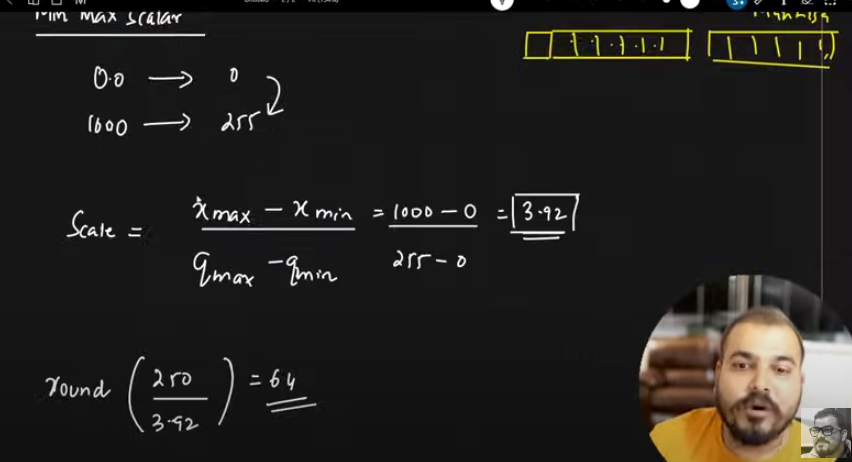 Min Max Scalar
0.0 → 0
1000 → 255
Scale = xmax - xmin / qmax - qmin = 1000 - 0 / 255 - 0 = 3.92
round (250 / 3.92) = 64